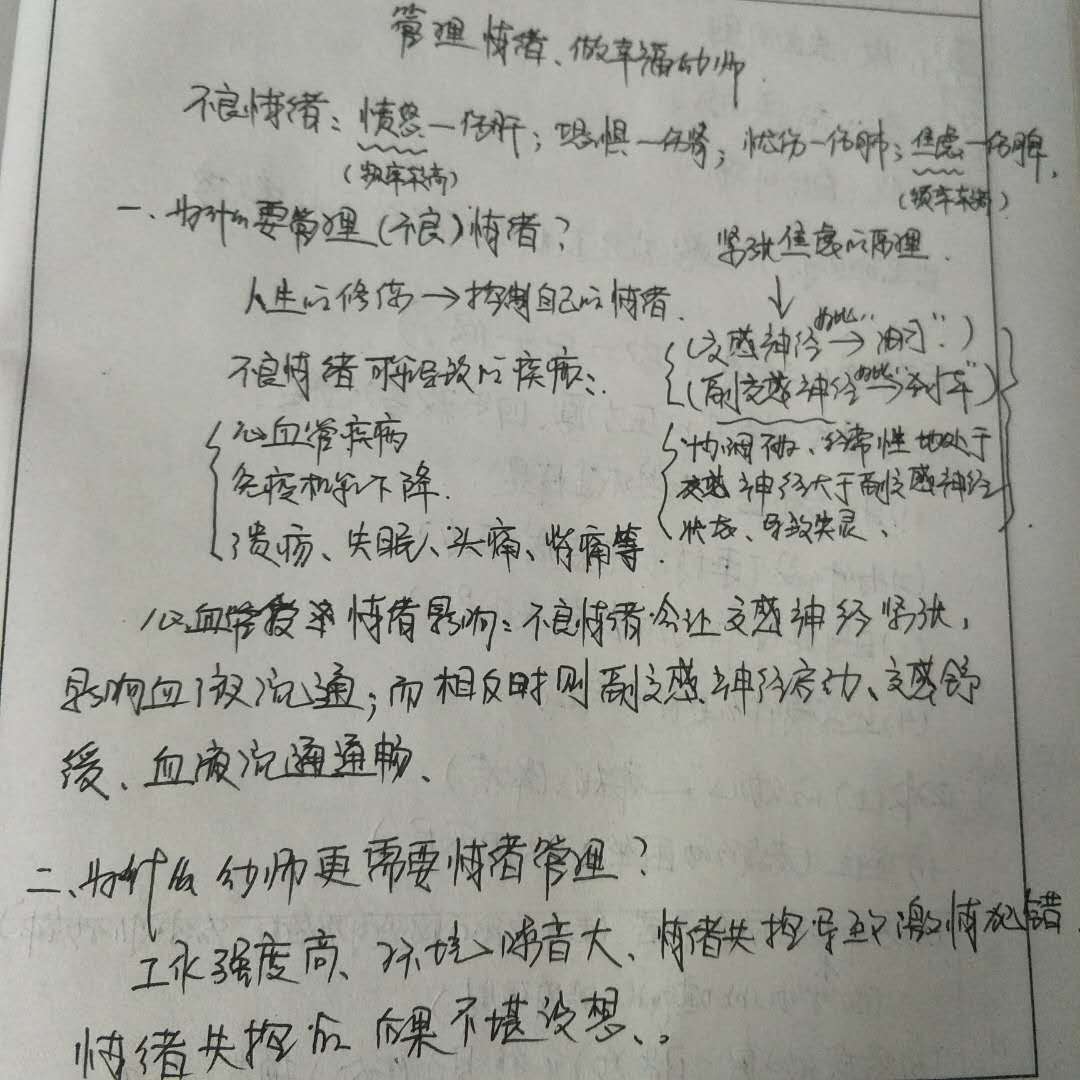 管理情绪、做幸福幼师
不良情绪：愤怒一伤肝；恐惧一伤肾；忧伤一伤肺；焦虑一伤脾，
(频率较高)
(频率较高)
一、为什么要管理(不良)情绪？
紧张焦虑的原理.
人生的修养→控制自己的情绪.
(交感神经 好比→"油门")
不良情绪可能导致的疾病：
(副交感神经 好比→"刹车")
心血管疾病
协调不好、经常性地处于
免疫机能下降.
交感神经大于副交感神经
溃疡、失眠、头痛、背痛等.
状态、导致失灵、
心血管受到情绪影响：不良情绪会让交感神经紧张，
影响血液流通；而相反时则副交感神经启动、交感舒
缓、血液流通通畅、
二、为什么幼师更需要情绪管理？
工作强度高、环境噪音大、情绪失控导致激情犯错.
情绪失控的后果不堪设想、。